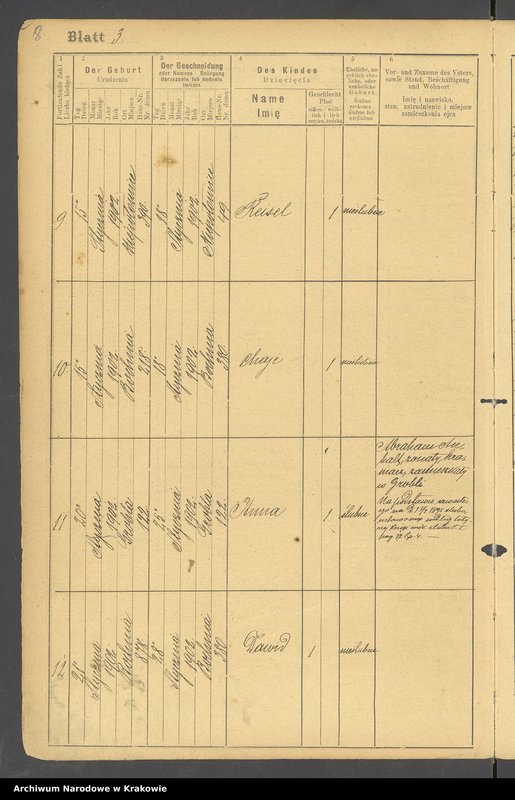 8
Blatt 3
1 2 3 4 5 6
Fortlaufende Zahl
Liczba bieżąca
Der Geburt
Urodzenia
Tag
Dzień
Monat
Miesiąc
Jahr
Rok
Ort
Miejsce
Haus-Nr.
Nr. domu
Der Beschneidung
oder Namens-Beilegung
Obrzezania lub nadania
imienia
Tag
Dzień
Monat
Miesiąc
Jahr
Rok
Ort
Miejsce
Haus-Nr.
Nr. domu
Des Kindes
Dziecięcia
Name
Imię
Geschlecht
Płeć
männ-
lich
męska
weib-
lich
żeńska
Eheliche, an-
geblich ehe-
liche, oder
uneheliche
Geburt
Ślubne
rzekomo
ślubne lub
nieślubne
Vor- und Zuname des Vaters,
sowie Stand, Beschäftigung
und Wohnort
Imię i nazwisko,
stan, zatrudnienie i miejsce
zamieszkania ojca
9 15 Stycznia 1902 Niepołomice 390 18 Stycznia 1902 Niepołomice 49 Reisel 1 nieślubne
10 15 Stycznia 1902 Bochnia 218 18 Stycznia 1902 Bochnia 380 Chaje 1 nieślubne
11 20 Stycznia 1902 Grobla 122 25 Stycznia 1902 Grobla 122 1 ślubne
Abraham
żonaty, kra-
marz, zamieszkały
w Grobli
Na podstawie
12 21 Stycznia 1902 Bochnia 28 Stycznia 1902 Bochnia 380 Dawid 1 nieślubne
Archiwum Narodowe w Krakowie